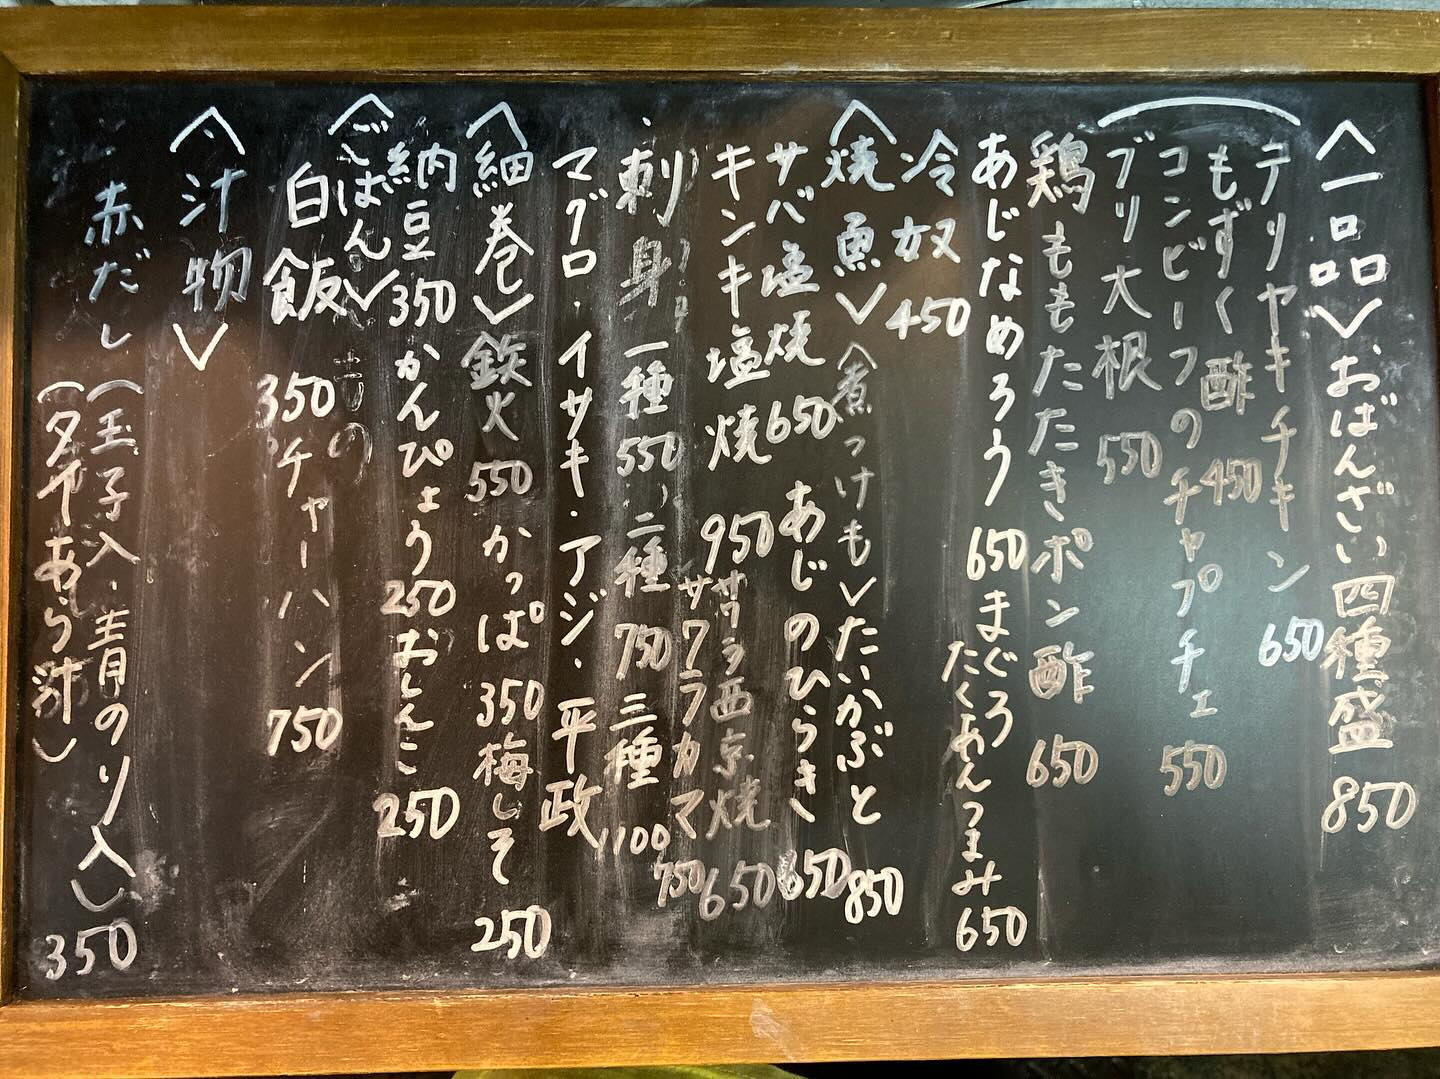 〈一品〉おばんざい四種盛 850
テリヤキチキン 650
もずく酢 450
コンビーフのチャプチェ 550
ブリ大根 550
鶏ももたたきポン酢 650
あじなめろう 650 まぐろたくあんつまみ 650
冷奴 450
〈焼魚〉〈煮つけも〉たいかぶと 850
サバ塩焼 650 あじのひらき 650
キンキ塩焼 950 サワラ西京焼 650
サワラカマ 750
刺身 一種 550 二種 750 三種 1100
マグロ・イサキ・アジ・平政
〈細巻〉鉄火 550 かっぱ 350 梅しそ 250
納豆 350 かんぴょう 250 おしんこ 250
〈ごはん〉
白飯 350 チャーハン 750
〈汁物〉
赤だし (玉子入・青のり入)
(あら汁) 350